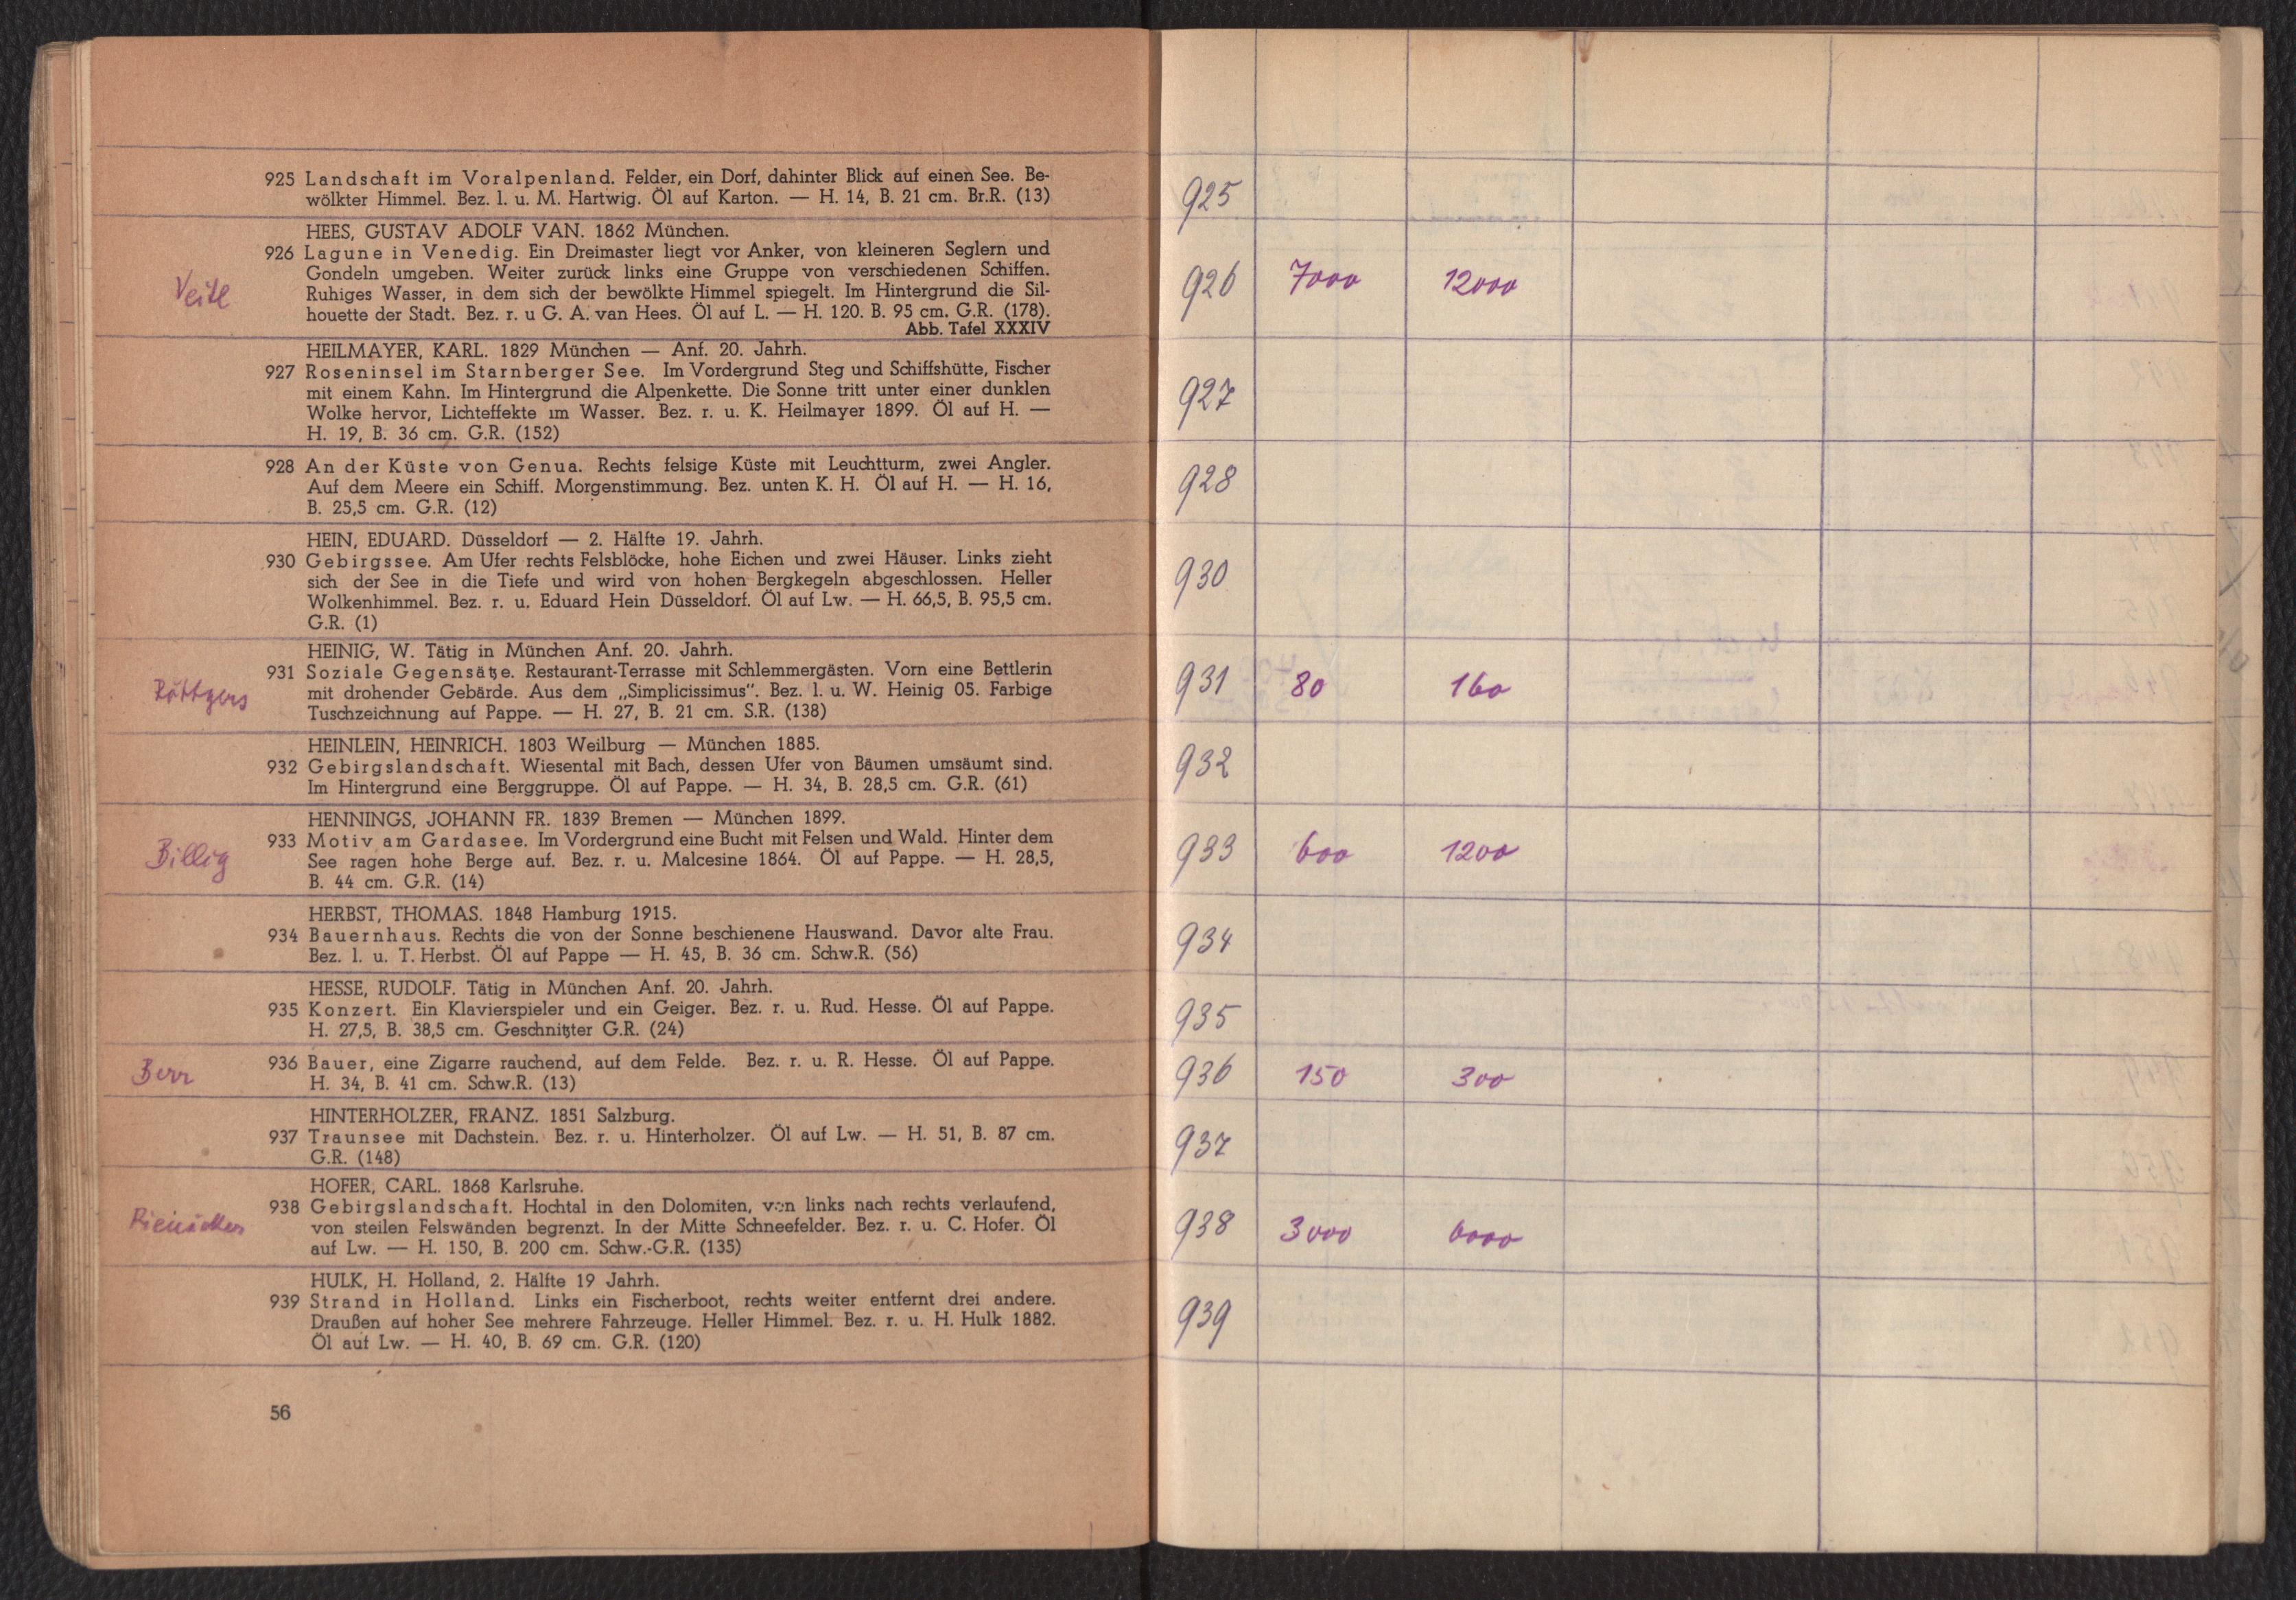 925 Landschaft im Voralpenland. Felder, ein Dorf, dahinter Blick auf einen See. Be-
wölkter Himmel. Bez. l. u. M. Hartwig. Öl auf Karton. — H. 14, B. 21 cm. Br.R. (13)
HEES, GUSTAV ADOLF VAN. 1862 München.
926 Lagune in Venedig. Ein Dreimaster liegt vor Anker, von kleineren Seglern und
Gondeln umgeben. Weiter zurück links eine Gruppe von verschiedenen Schiffen.
Veitl
Ruhiges Wasser, in dem sich der bewölkte Himmel spiegelt. Im Hintergrund die Sil-
houette der Stadt. Bez. r. u G. A. van Hees. Öl auf L. — H. 120. B. 95 cm. G.R. (178).
Abb. Tafel XXXIV
HEILMAYER, KARL. 1829 München — Anf. 20. Jahrh.
927 Roseninsel im Starnberger See. Im Vordergrund Steg und Schiffshütte, Fischer
mit einem Kahn. Im Hintergrund die Alpenkette. Die Sonne tritt unter einer dunklen
Wolke hervor, Lichteffekte im Wasser. Bez. r. u. K. Heilmayer 1899. Öl auf H. —
H. 19, B. 36 cm. G.R. (152)
928 An der Küste von Genua. Rechts felsige Küste mit Leuchtturm, zwei Angler.
Auf dem Meere ein Schiff. Morgenstimmung. Bez. unten K. H. Öl auf H. — H. 16,
B. 25,5 cm. G.R. (12)
HEIN, EDUARD. Düsseldorf — 2. Hälfte 19. Jahrh.
930 Gebirgssee. Am Ufer rechts Felsblöcke, hohe Eichen und zwei Häuser. Links zieht
sich der See in die Tiefe und wird von hohen Bergkegeln abgeschlossen. Heller
Wolkenhimmel. Bez. r. u. Eduard Hein Düsseldorf. Öl auf Lw. — H. 66,5, B. 95,5 cm.
G.R. (1)
HEINIG, W. Tätig in München Anf. 20. Jahrh.
931 Soziale Gegensätze. Restaurant-Terrasse mit Schlemmergästen. Vorn eine Bettlerin
Röttgers
mit drohender Gebärde. Aus dem „Simplicissimus“. Bez. l. u. W. Heinig 05. Farbige
Tuschzeichnung auf Pappe. — H. 27, B. 21 cm. S.R. (138)
HEINLEIN, HEINRICH. 1803 Weilburg — München 1885.
932 Gebirgslandschaft. Wiesental mit Bach, dessen Ufer von Bäumen umsäumt sind.
Im Hintergrund eine Berggruppe. Öl auf Pappe. — H. 34, B. 28,5 cm. G.R. (61)
HENNINGS, JOHANN FR. 1839 Bremen — München 1899.
933 Motiv am Gardasee. Im Vordergrund eine Bucht mit Felsen und Wald. Hinter dem
Billig
See ragen hohe Berge auf. Bez. r. u. Malcesine 1864. Öl auf Pappe. — H. 28,5,
B. 44 cm. G.R. (14)
HERBST, THOMAS. 1848 Hamburg 1915.
934 Bauernhaus. Rechts die von der Sonne beschienene Hauswand. Davor alte Frau.
Bez. l. u. T. Herbst. Öl auf Pappe — H. 45, B. 36 cm. Schw.R. (56)
HESSE, RUDOLF. Tätig in München Anf. 20. Jahrh.
935 Konzert. Ein Klavierspieler und ein Geiger. Bez. r. u. Rud. Hesse. Öl auf Pappe.
H. 27,5, B. 38,5 cm. Geschnitzter G.R. (24)
936 Bauer, eine Zigarre rauchend, auf dem Felde. Bez. r. u. R. Hesse. Öl auf Pappe.
Berr
H. 34, B. 41 cm. Schw.R. (13)
HINTERHOLZER, FRANZ. 1851 Salzburg.
937 Traunsee mit Dachstein. Bez. r. u. Hinterholzer. Öl auf Lw. — H. 51, B. 87 cm.
G.R. (148)
HOFER, CARL. 1868 Karlsruhe.
938 Gebirgslandschaft. Hochtal in den Dolomiten, von links nach rechts verlaufend,
von steilen Felswänden begrenzt. In der Mitte Schneefelder. Bez. r. u. C. Hofer. Öl
auf Lw. — H. 150, B. 200 cm. Schw.-G.R. (135)
HULK, H. Holland, 2. Hälfte 19 Jahrh.
939 Strand in Holland. Links ein Fischerboot, rechts weiter entfernt drei andere.
Draußen auf hoher See mehrere Fahrzeuge. Heller Himmel. Bez. r. u. H. Hulk 1882.
Öl auf Lw. — H. 40, B. 69 cm. G.R. (120)
56
925
926 7000 12000
927
928
930
931 80 160
932
933 600 1200
934
935
936 150 300
937
938 3000 6000
939